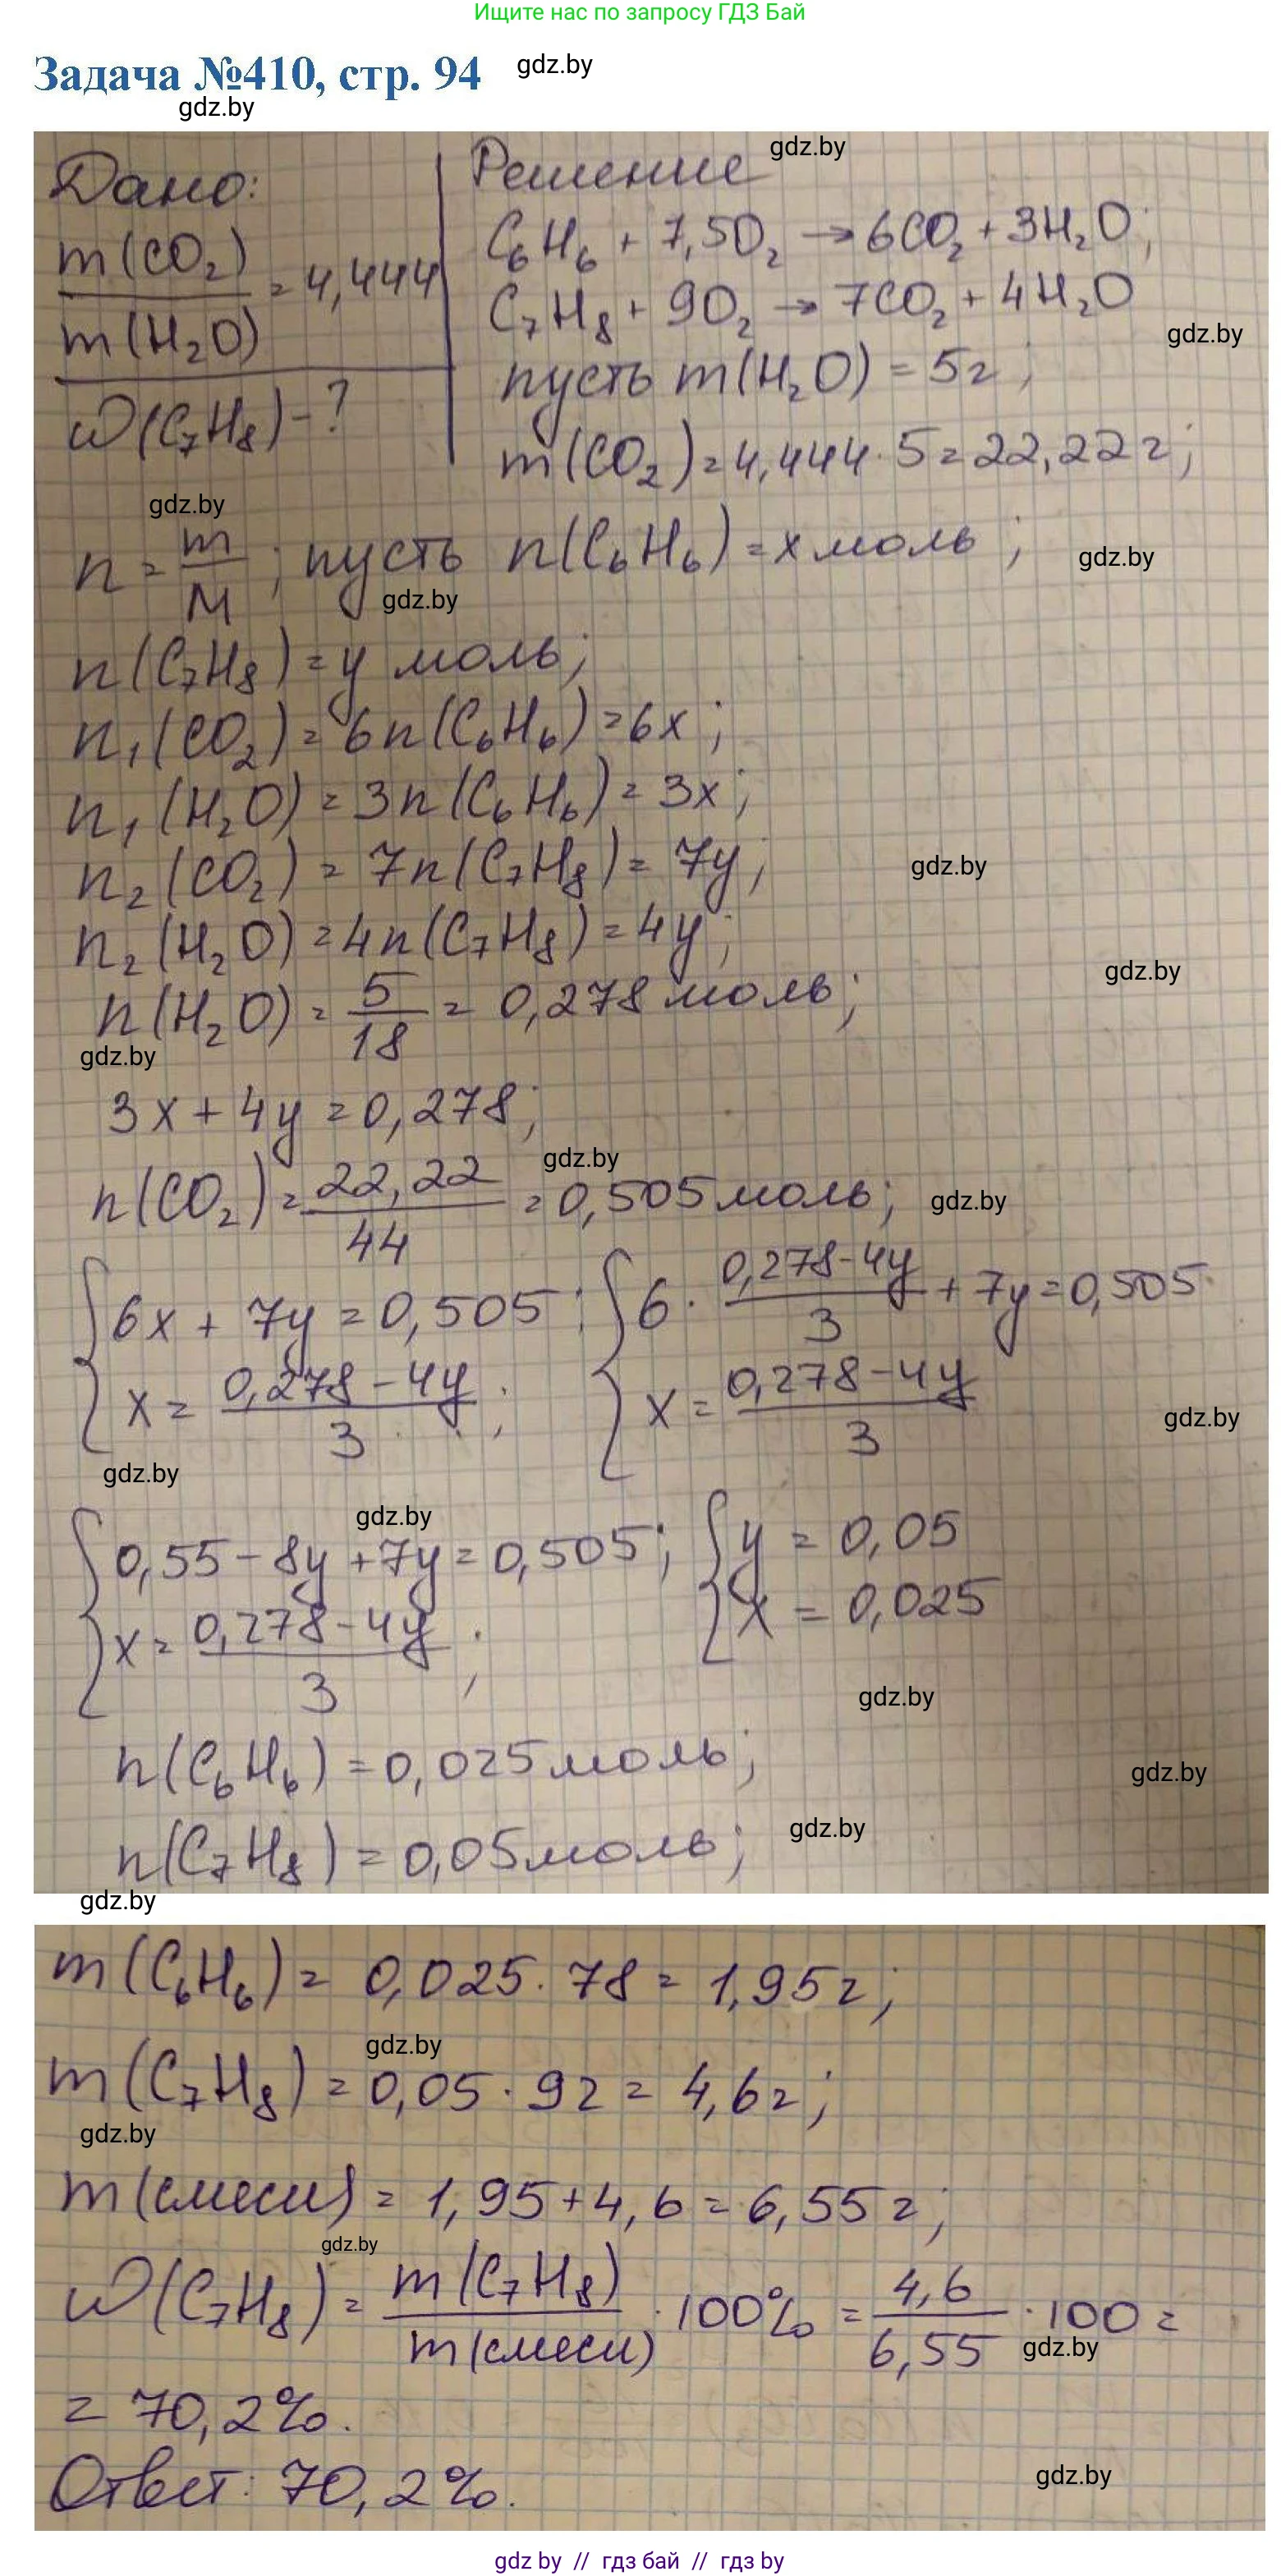 Ищите нас по запросу ГДЗ Бай
Задача №410, стр. 94 gdz.by
gdz.by
gdz.by
Дано:
m(CO₂)/m(H₂O) = 4,444
ω(C₇H₈) - ?
Решение
C₆H₆ + 7,5O₂ → 6CO₂ + 3H₂O;
C₇H₈ + 9O₂ → 7CO₂ + 4H₂O
gdz.by
пусть m(H₂O) = 5г;
m(CO₂) = 4,444 · 5 = 22,22 г;
gdz.by
n = m/M; пусть n(C₆H₆) = x моль;
gdz.by
gdz.by
n(C₇H₈) = y моль;
n₁(CO₂) = 6n(C₆H₆) = 6x;
n₁(H₂O) = 3n(C₆H₆) = 3x;
n₂(CO₂) = 7n(C₇H₈) = 7y;
gdz.by
n₂(H₂O) = 4n(C₇H₈) = 4y;
gdz.by
n(H₂O) = 5/18 = 0,278 моль;
gdz.by
3x + 4y = 0,278;
gdz.by
n(CO₂) = 22,22/44 = 0,505 моль;
gdz.by
{ 6x + 7y = 0,505; { 6 · (0,278-4y)/3 + 7y = 0,505
x = (0,278-4y)/3; x = (0,278-4y)/3
gdz.by
gdz.by
gdz.by
{ 0,55 - 8y + 7y = 0,505; { y = 0,05
x = (0,278-4y)/3; x = 0,025
gdz.by
n(C₆H₆) = 0,025 моль;
gdz.by
gdz.by
n(C₇H₈) = 0,05 моль;
gdz.by
m(C₆H₆) = 0,025 · 78 = 1,95 г;
gdz.by
m(C₇H₈) = 0,05 · 92 = 4,6 г;
gdz.by
m(смеси) = 1,95 + 4,6 = 6,55 г;
gdz.by
ω(C₇H₈) = m(C₇H₈)/m(смеси) · 100% = 4,6/6,55 · 100 =
gdz.by
= 70,2%.
gdz.by
Ответ: 70,2%.
gdz by // гдз бай // гдз by